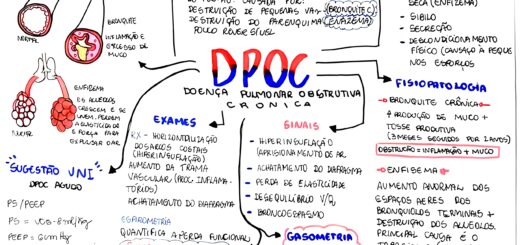 BRONQUITE
INFLAMAÇÃO E
EXCESSO DE
MUCO
NORMAL
ENFISEMA
OS ALVEOLOS
CRESCEM E SE
UNEM, PERDEM
A ELASTICIDADE
E FORÇA PARA
EXPULSAR O AR
DESTRUIÇÃO DE PEQUENAS VIAS (BRONQUITE C)
DESTRUIÇÃO DO PARENQUIMA (ENFIZEMA)
POUCO REVERSÍVEL
SECA (ENFIZEMA)
- SIBILO
- SECREÇÃO
- DESCONDICIONAMENTO
FÍSICO (CANSAÇO À PEQUE
NOS ESFORÇOS
DPOC
DOENÇA PULMONAR OBSTRUTIVA
CRÔNICA
EXAMES
RX - HORIZONTALIZAÇÃO
DOS ARCOS COSTAIS
(HIPERINSUFLAÇÃO)
AUMENTO DA TRAMA
VASCULAR (PROC. INFLAMA-
TÓRIOS)
ACHATAMENTO DO DIAFRAGMA
ESPIROMETRIA
QUANTIFICA A PERDA FUNCIONAL
SINAIS
- HIPERINSUFLAÇÃO
(APRISIONAMENTO DE AR
- ACHATAMENTO DO DIAFRAGMA
- PERDA DE ELASTICIDADE
- DESEQUILÍBRIO V/Q
- BRONCOESPASMO
GASOMETRIA
FISIOPATOLOGIA
BRONQUITE CRÔNICA
↑ PRODUÇÃO DE MUCO +
TOSSE PRODUTIVA
(3 MESES SEGUIDOS POR 2 ANOS)
OBSTRUÇÃO = INFLAMAÇÃO + MUCO
ENFISEMA
AUMENTO ANORMAL DOS
ESPAÇOS AEREOS DOS
BRONQUIOLOS TERMINAIS +
DESTRUIÇÃO DOS ALVEOLOS.
PRINCIPAL CAUSA É O
SUGESTÃO VNI
DPOC AGUDO
PS/PEEP
PEEP = 6cmHg